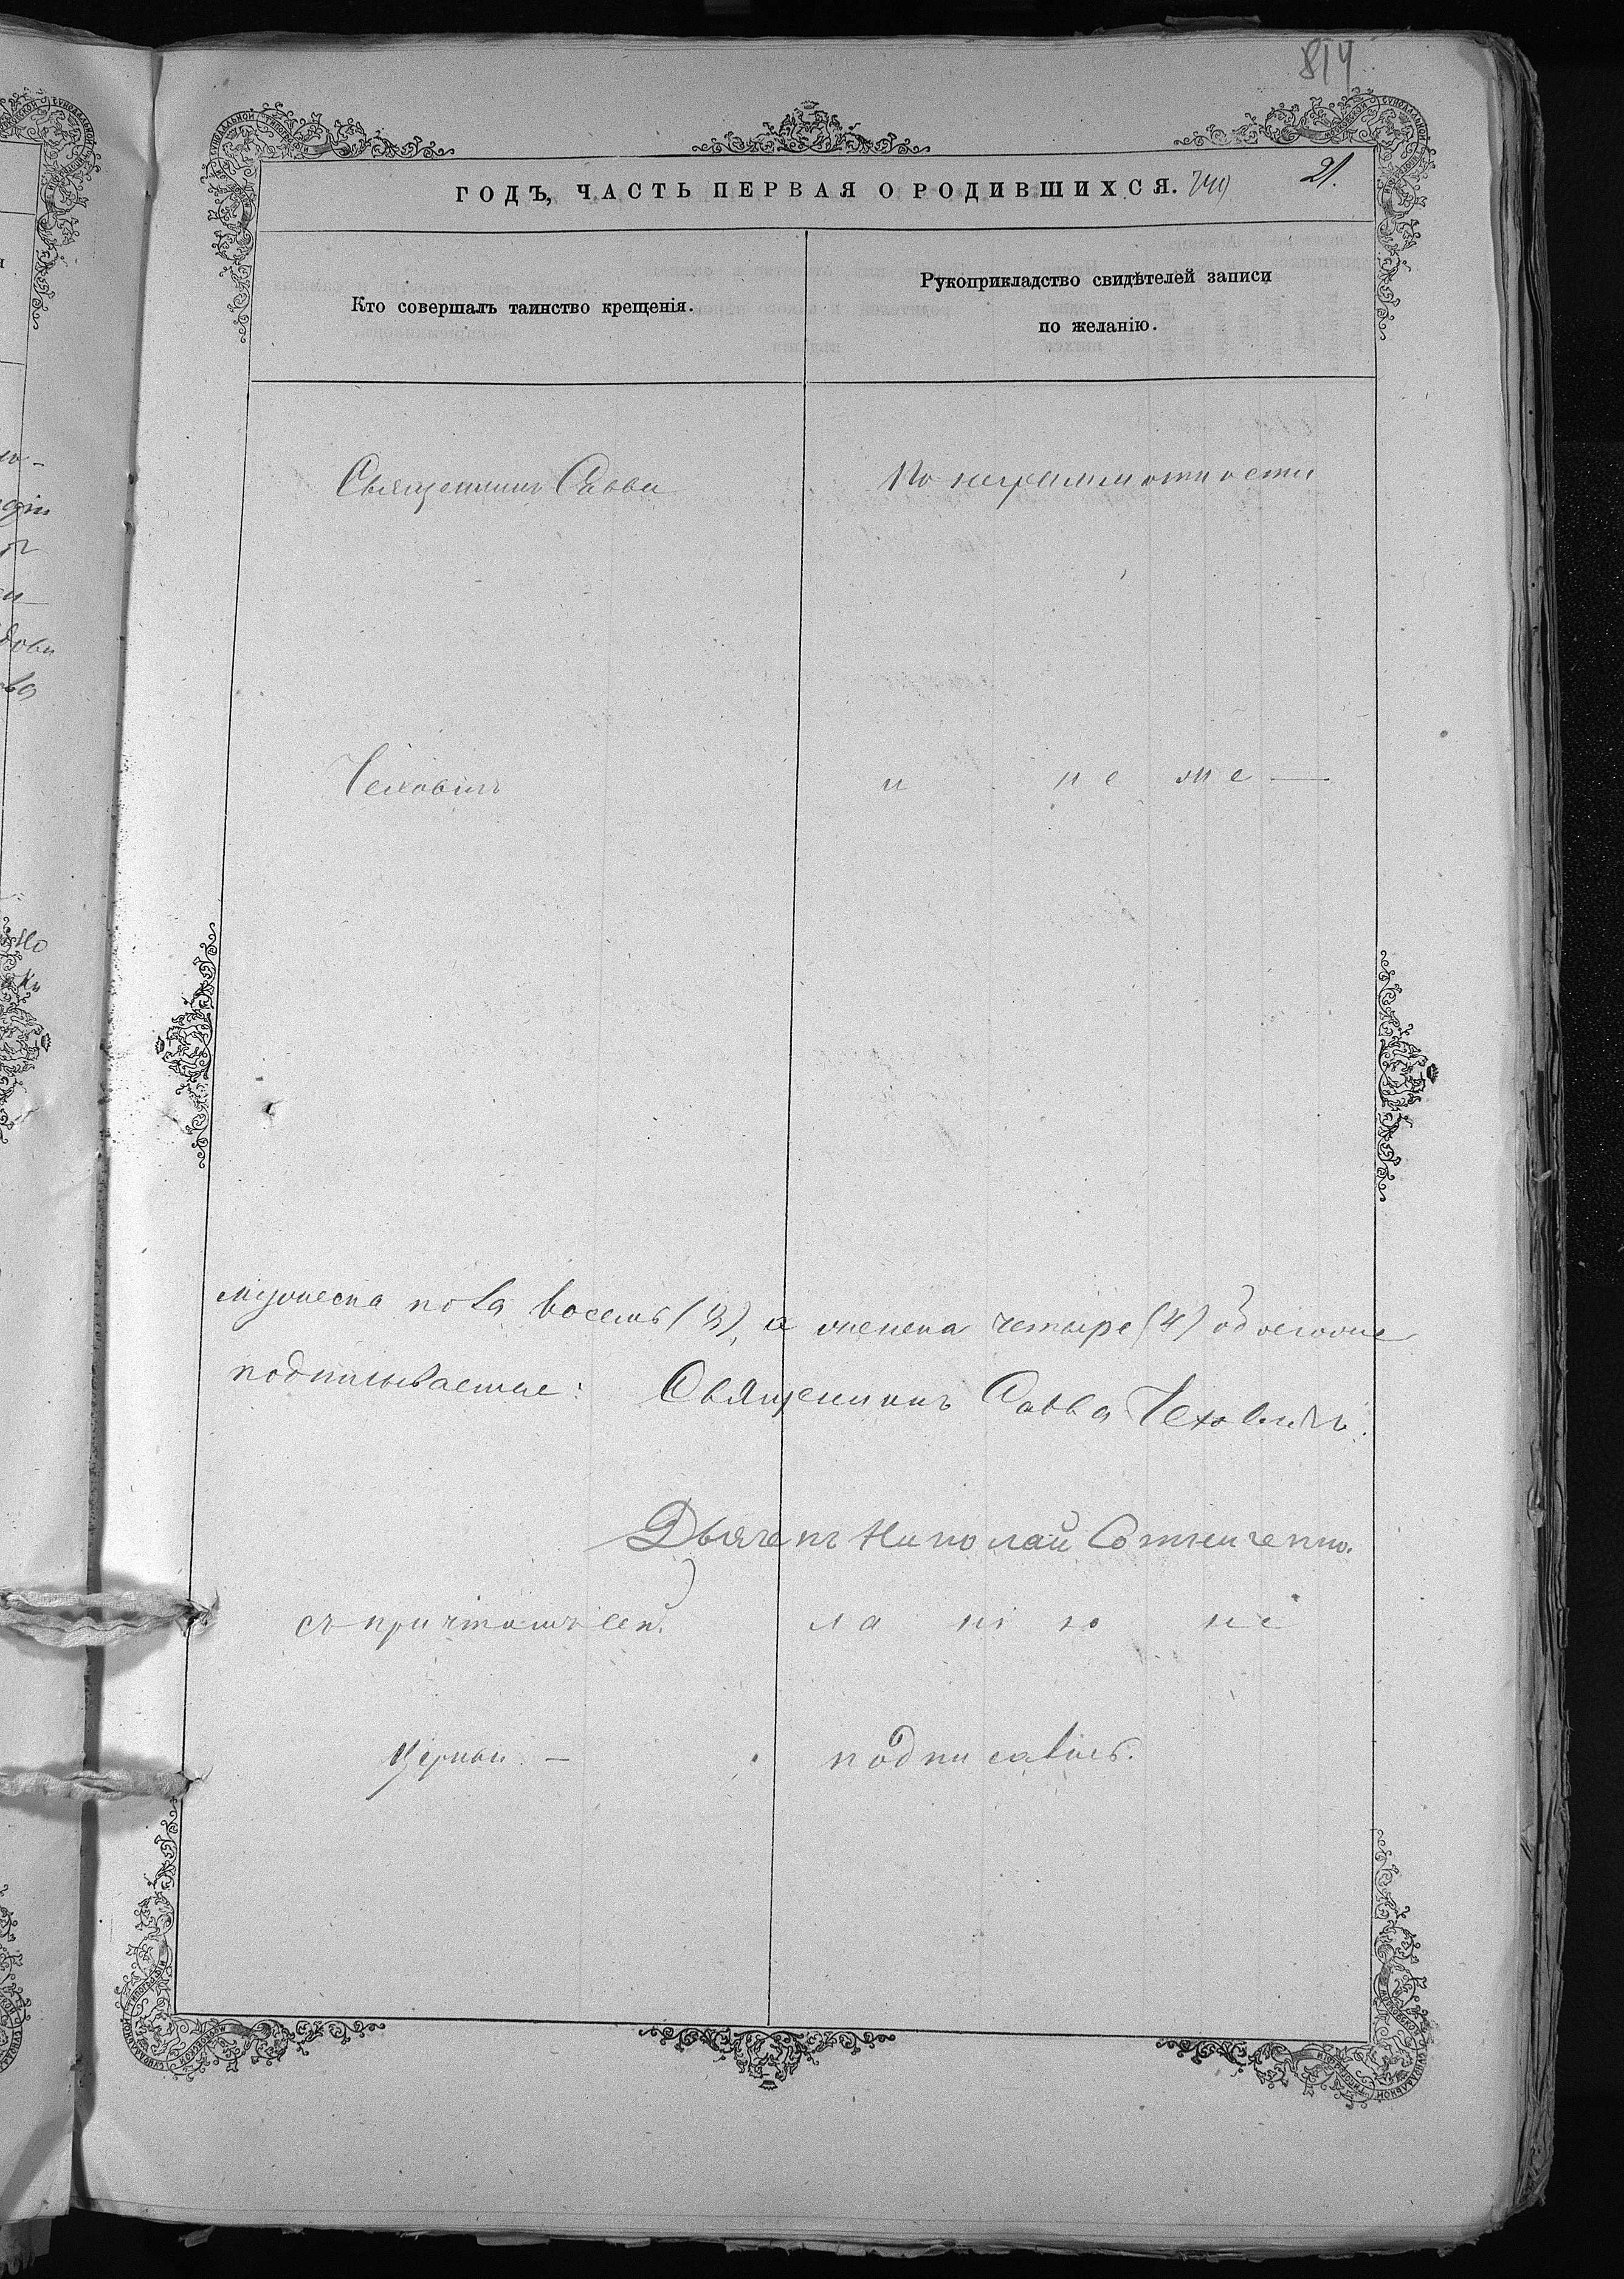 814
ГОДЪ, ЧАСТЬ ПЕРВАЯ О РОДИВШИХСЯ. 21.
Кто совершалъ таинство крещенія.
Рукоприкладство свидѣтелей записи
по желанію.
Священникъ Савва
По неграмотности
Чеховичъ
и не же —
мужеска пола восемь (8), а женска четыре (4) обоего
подписываемся: Священникъ Савва Чеховичъ.
Дьячекъ Николай Сотниченко.
съ причтомъ сей
ла нію не
церкви —
подписались.